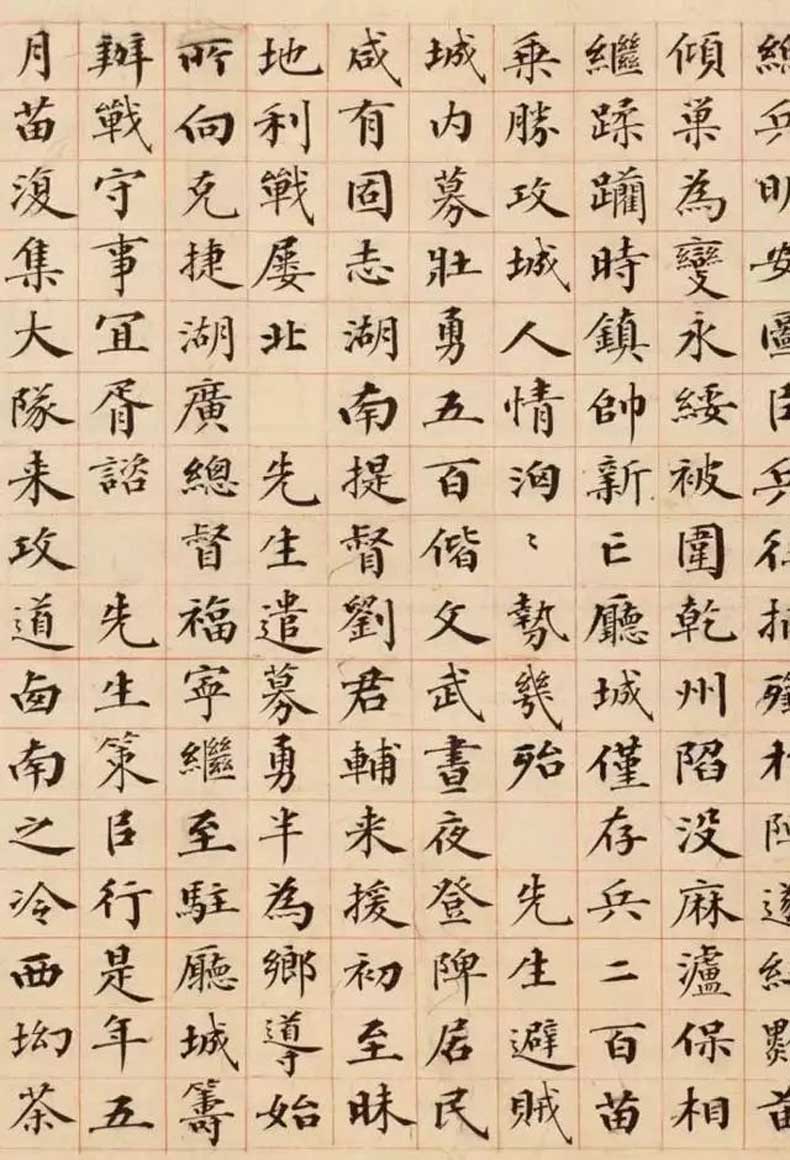 總兵明安圖㠯兵往捕
傾巢為變永綏被圍乾州陷没麻瀘保相
繼蹂躪時鎮帥新亡廳城僅存兵二百苗
乘勝攻城人情洶〻勢幾殆 先生避賊
城内募壯勇五百偕文武晝夜登陴居民
咸有固志湖南提督劉君輔来援初至昧
地利戰屢北 先生遣募勇半為鄉導始
所向克捷湖廣總督福寧繼至駐廳城籌
辦戰守事宜胥諮 先生策㠯行是年五
月苗復集大隊来攻道南之冷西坳茶